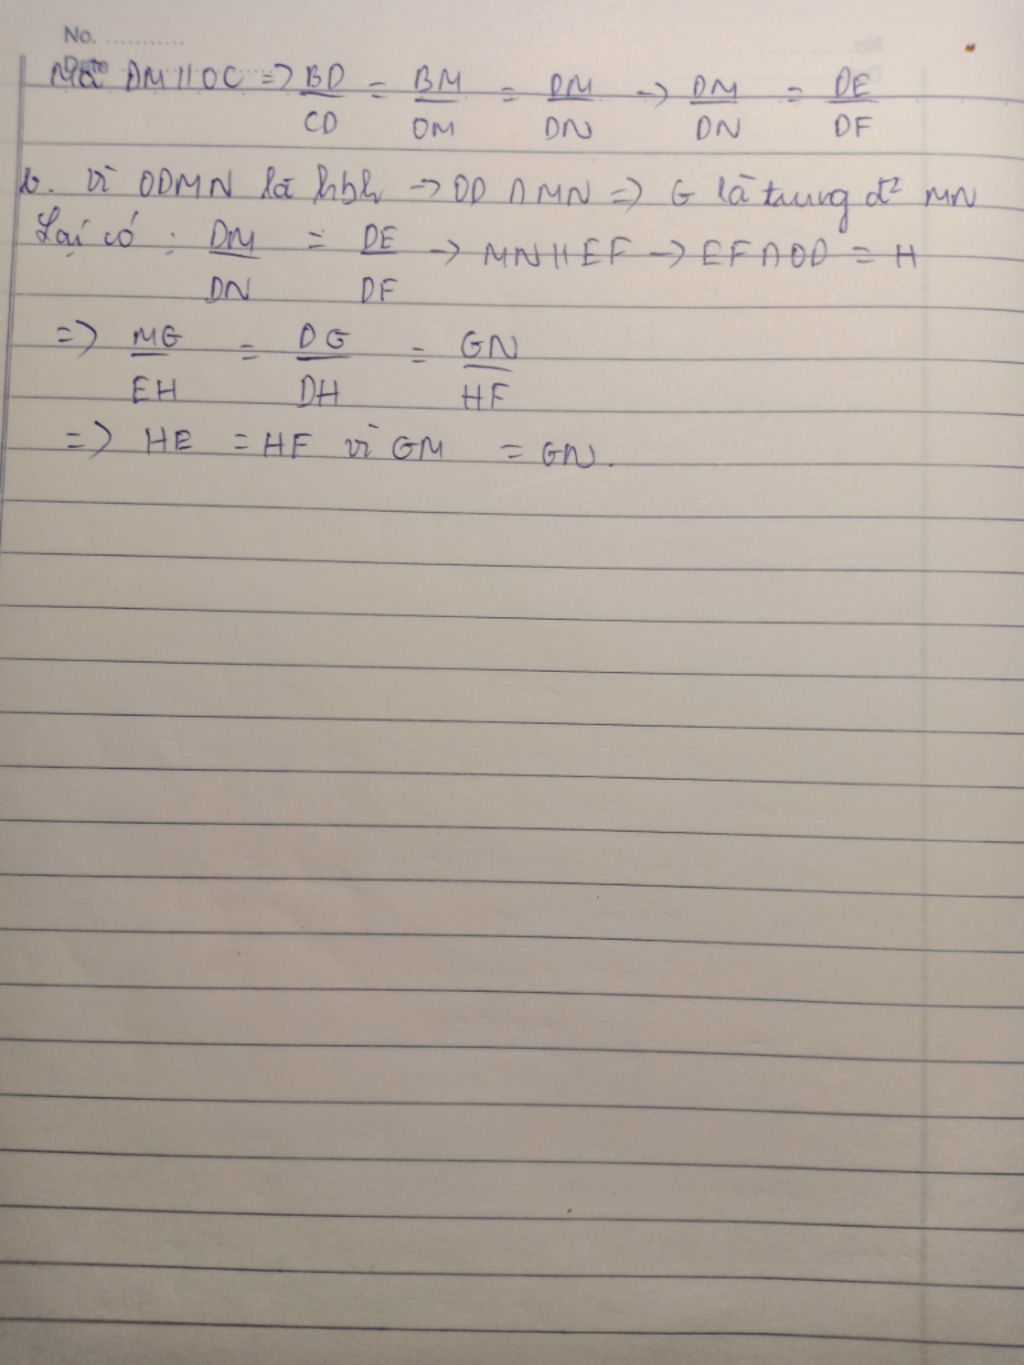 No. ...........
Mà DM // OC => BD/CD = BM/OM = DM/DN -> DM/DN = DE/DF
b. Vì ODMN là hbh -> OD ∩ MN => G là trung đ² MN
Lại có : DM/DN = DE/DF -> MN // EF -> EF ∩ OD = H
=> MG/EH = DG/DH = GN/HF
=> HE = HF vì GM = GN.